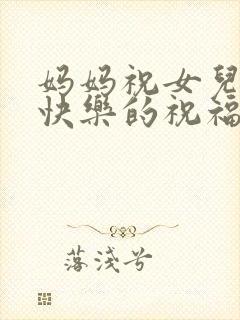 妈妈祝女兒
快樂的祝福
落淺兮